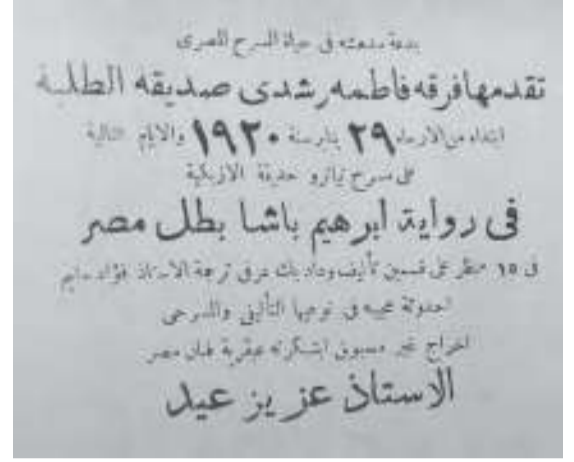 بدعة مدهشه في حياة المسرح المصرى
تقدمها فرقه فاطمه رشدى صديقه الطلبة
ابتداء من الاربعاء ٢٩ يناير سنة ١٩٢٠ والايام التالية
على مسرح تياترو حديقة الازبكية
فى رواية ابرهيم باشا بطل مصر
فى ١٥ منظر على قسمين تأليف وداد بك عرفى ترجمة الاستاذ فؤاد سليم
احدوثة عجيبه فى نوعها التأليفى والمسرحى
اخراج غير مسبوق ابتكرته عبقرية فنان مصر
الاستاذ عزيز عيد